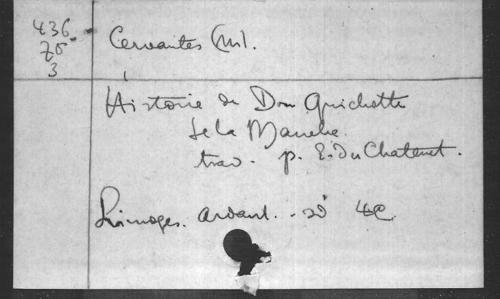 436
70
3
Cervantes (M).
Histoire de Don Quichotte
de la Manche.
trad. p. E. Du Chatenet.
Limoges. Ardant. - sd 4°